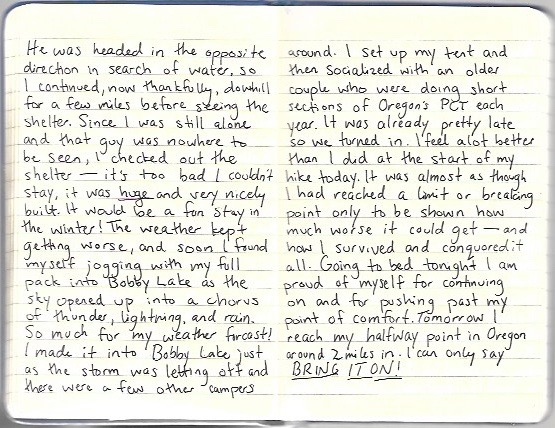 He was headed in the opposite
direction in search of water, so
I continued, now thankfully, dowhill
for a few miles before seeing the
shelter. Since I was still alone
and that guy was nowhere to
be seen, I checked out the
shelter — it's too bad I couldn't
stay, it was huge and very nicely
built. It would be a fun stay in
the winter! The weather kept
getting worse, and soon I found
myself jogging with my full
pack into Bobby Lake as the
sky opened up into a chorus
of thunder, lightning, and rain.
So much for my weather forcast!
I made it into Bobby Lake just
as the storm was letting off and
there were a few other campers
around. I set up my tent and
then socialized with an older
couple who were doing short
sections of Oregon's PCT each
year. It was already pretty late
so we turned in. I feel alot better
than I did at the start of my
hike today. It was almost as though
I had reached a limit or breaking
point only to be shown how
much worse it could get — and
how I survived and conquored it
all. Going to bed tonight I am
proud of myself for continuing
on and for pushing past my
point of comfort. Tomorrow I
reach my halfway point in Oregon
around 2 miles in. I can only say
BRING IT ON!